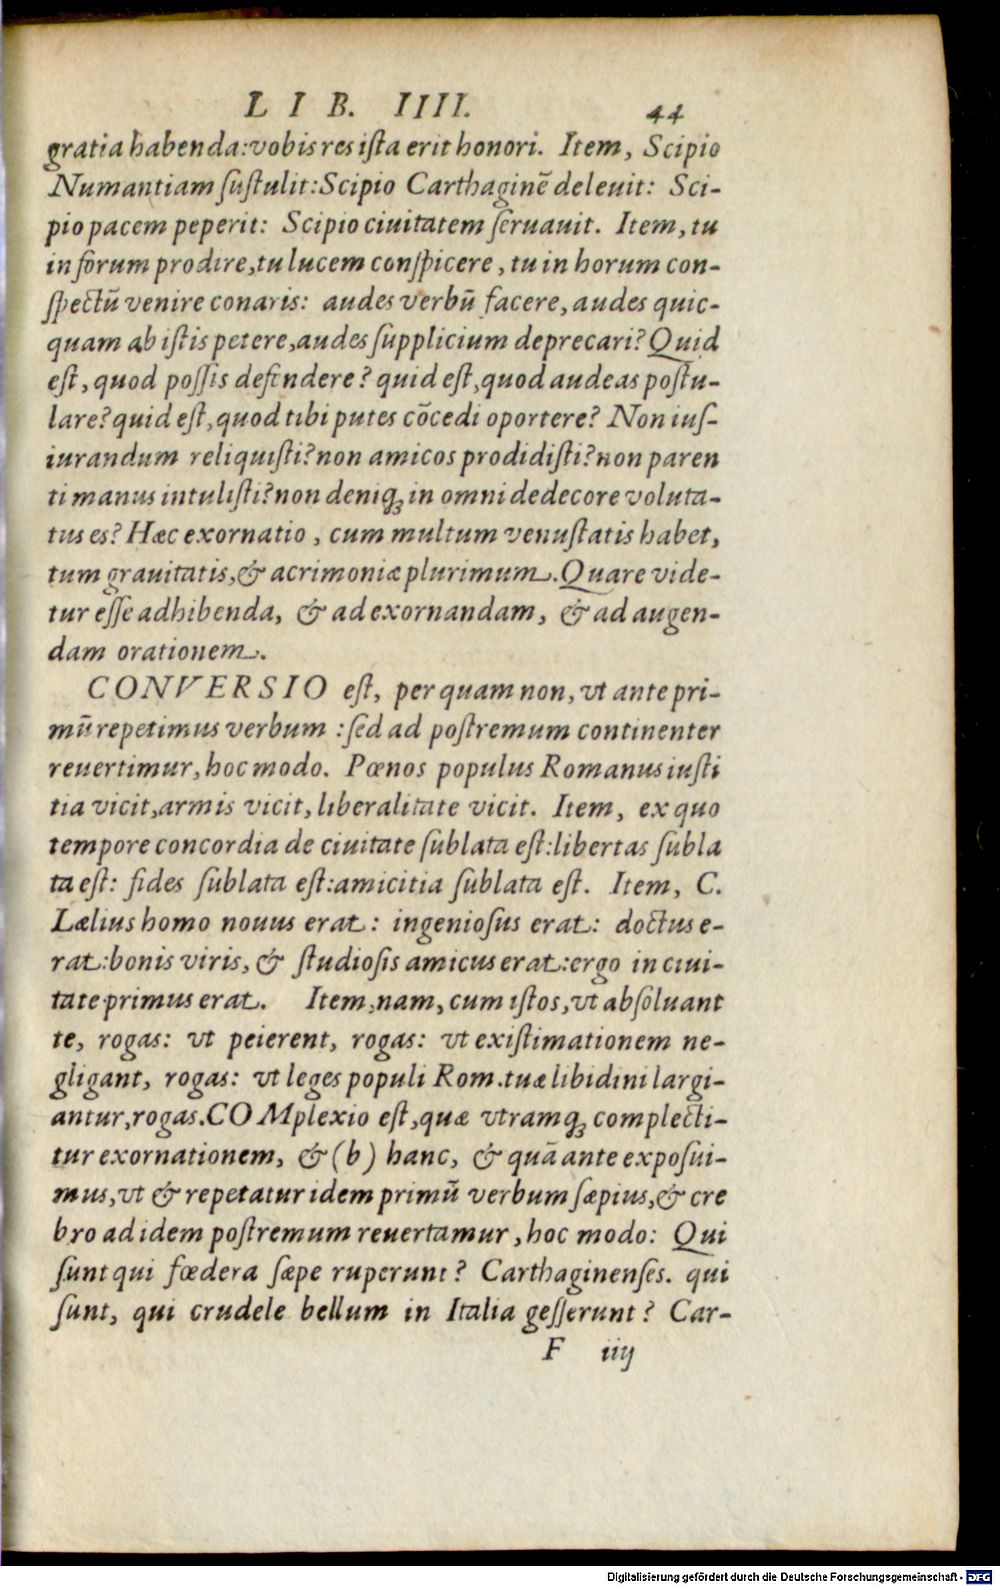 LIB. IIII. 44
gratia habenda: vobis res ista erit honori. Item, Scipio
Numantiam sustulit: Scipio Carthaginē deleuit: Sci-
pio pacem peperit: Scipio ciuitatem seruauit. Item, tu
in forum prodire, tu lucem conspicere, tu in horum con-
spectū venire conaris: audes verbū facere, audes quic-
quam ab istis petere, audes supplicium deprecari? Quid
est, quod possis defendere? quid est, quod audeas postu-
lare? quid est, quod tibi putes cōcedi oportere? Non ius-
iurandum reliquisti? non amicos prodidisti? non paren
ti manus intulisti? non deniq; in omni dedecore voluta-
tus es? Hæc exornatio, cum multum venustatis habet,
tum grauitatis, & acrimoniæ plurimum. Quare vide-
tur esse adhibenda, & ad exornandam, & ad augen-
dam orationem.
CONVERSIO est, per quam non, vt ante pri-
mū repetimus verbum: sed ad postremum continenter
reuertimur, hoc modo. Pœnos populus Romanus iusti
tia vicit, armis vicit, liberalitate vicit. Item, ex quo
tempore concordia de ciuitate sublata est: libertas subla
ta est: fides sublata est: amicitia sublata est. Item, C.
Lælius homo nouus erat: ingeniosus erat: doctus e-
rat: bonis viris, & studiosis amicus erat: ergo in ciui-
tate primus erat. Item, nam, cum istos, vt absoluant
te, rogas: vt peierent, rogas: vt existimationem ne-
gligant, rogas: vt leges populi Rom. tuæ libidini largi-
antur, rogas. COMplexio est, quæ vtramq; complecti-
tur exornationem, & (b) hanc, & quā ante exposui-
mus, vt & repetatur idem primū verbum sæpius, & cre
bro ad idem postremum reuertamur, hoc modo: Qui
sunt qui fœdera sæpe ruperunt? Carthaginenses. qui
sunt, qui crudele bellum in Italia gesserunt? Car-
F iiij
Digitalisierung gefördert durch die Deutsche Forschungsgemeinschaft - DFG